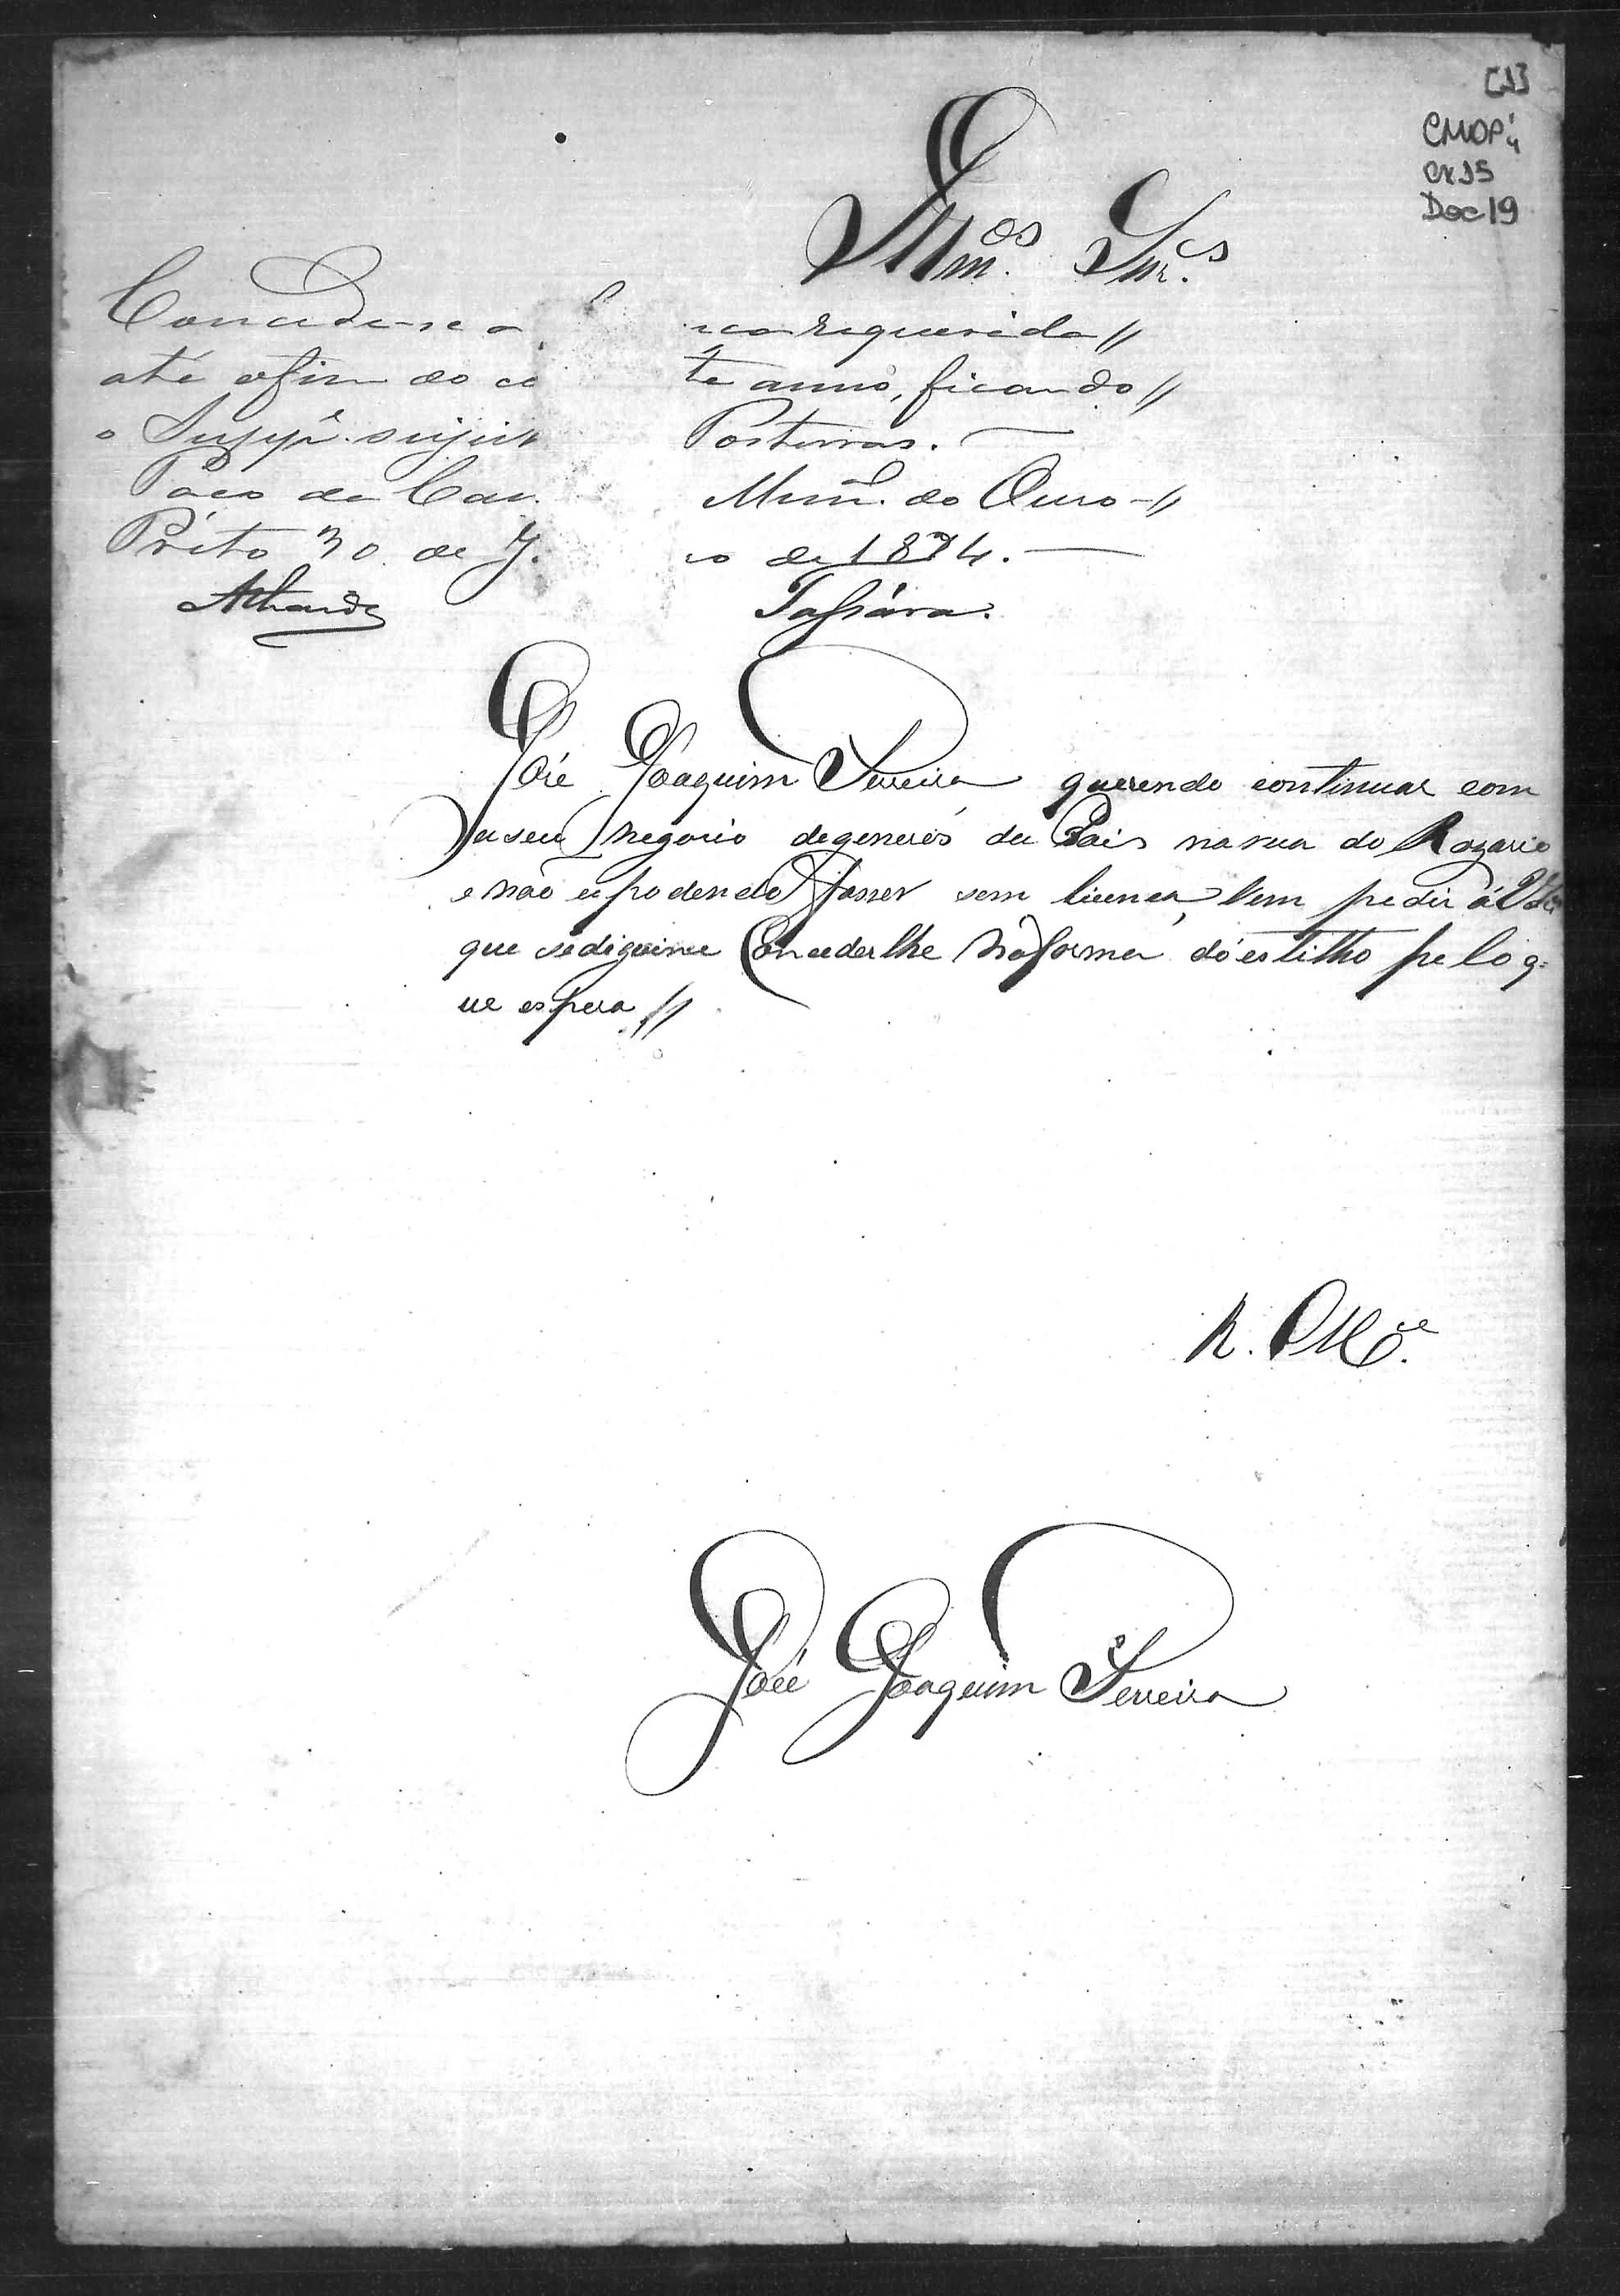 [1]
CMOP
CX 35
Doc 19
Illm.os Snr.es
Concede-se a licença requerida //
até o fim do te anno, ficando //
o Supp.e sujeit Posturas. —
Paço da Cam. Mun.al do Ouro-//
Prêto 30 de J. ro de 1874. —
Tassára.
José Joaquim Pereira querendo continuar com
o seu negocio degeneros du Pais na rua do Rozario
e não o podendo fasser sem licença, vem pedir á VS.as
que sedigeine Concederlhe náforma dó estilho pelo q=
ue espera //
R. M.ce
José Joaquim Pereira